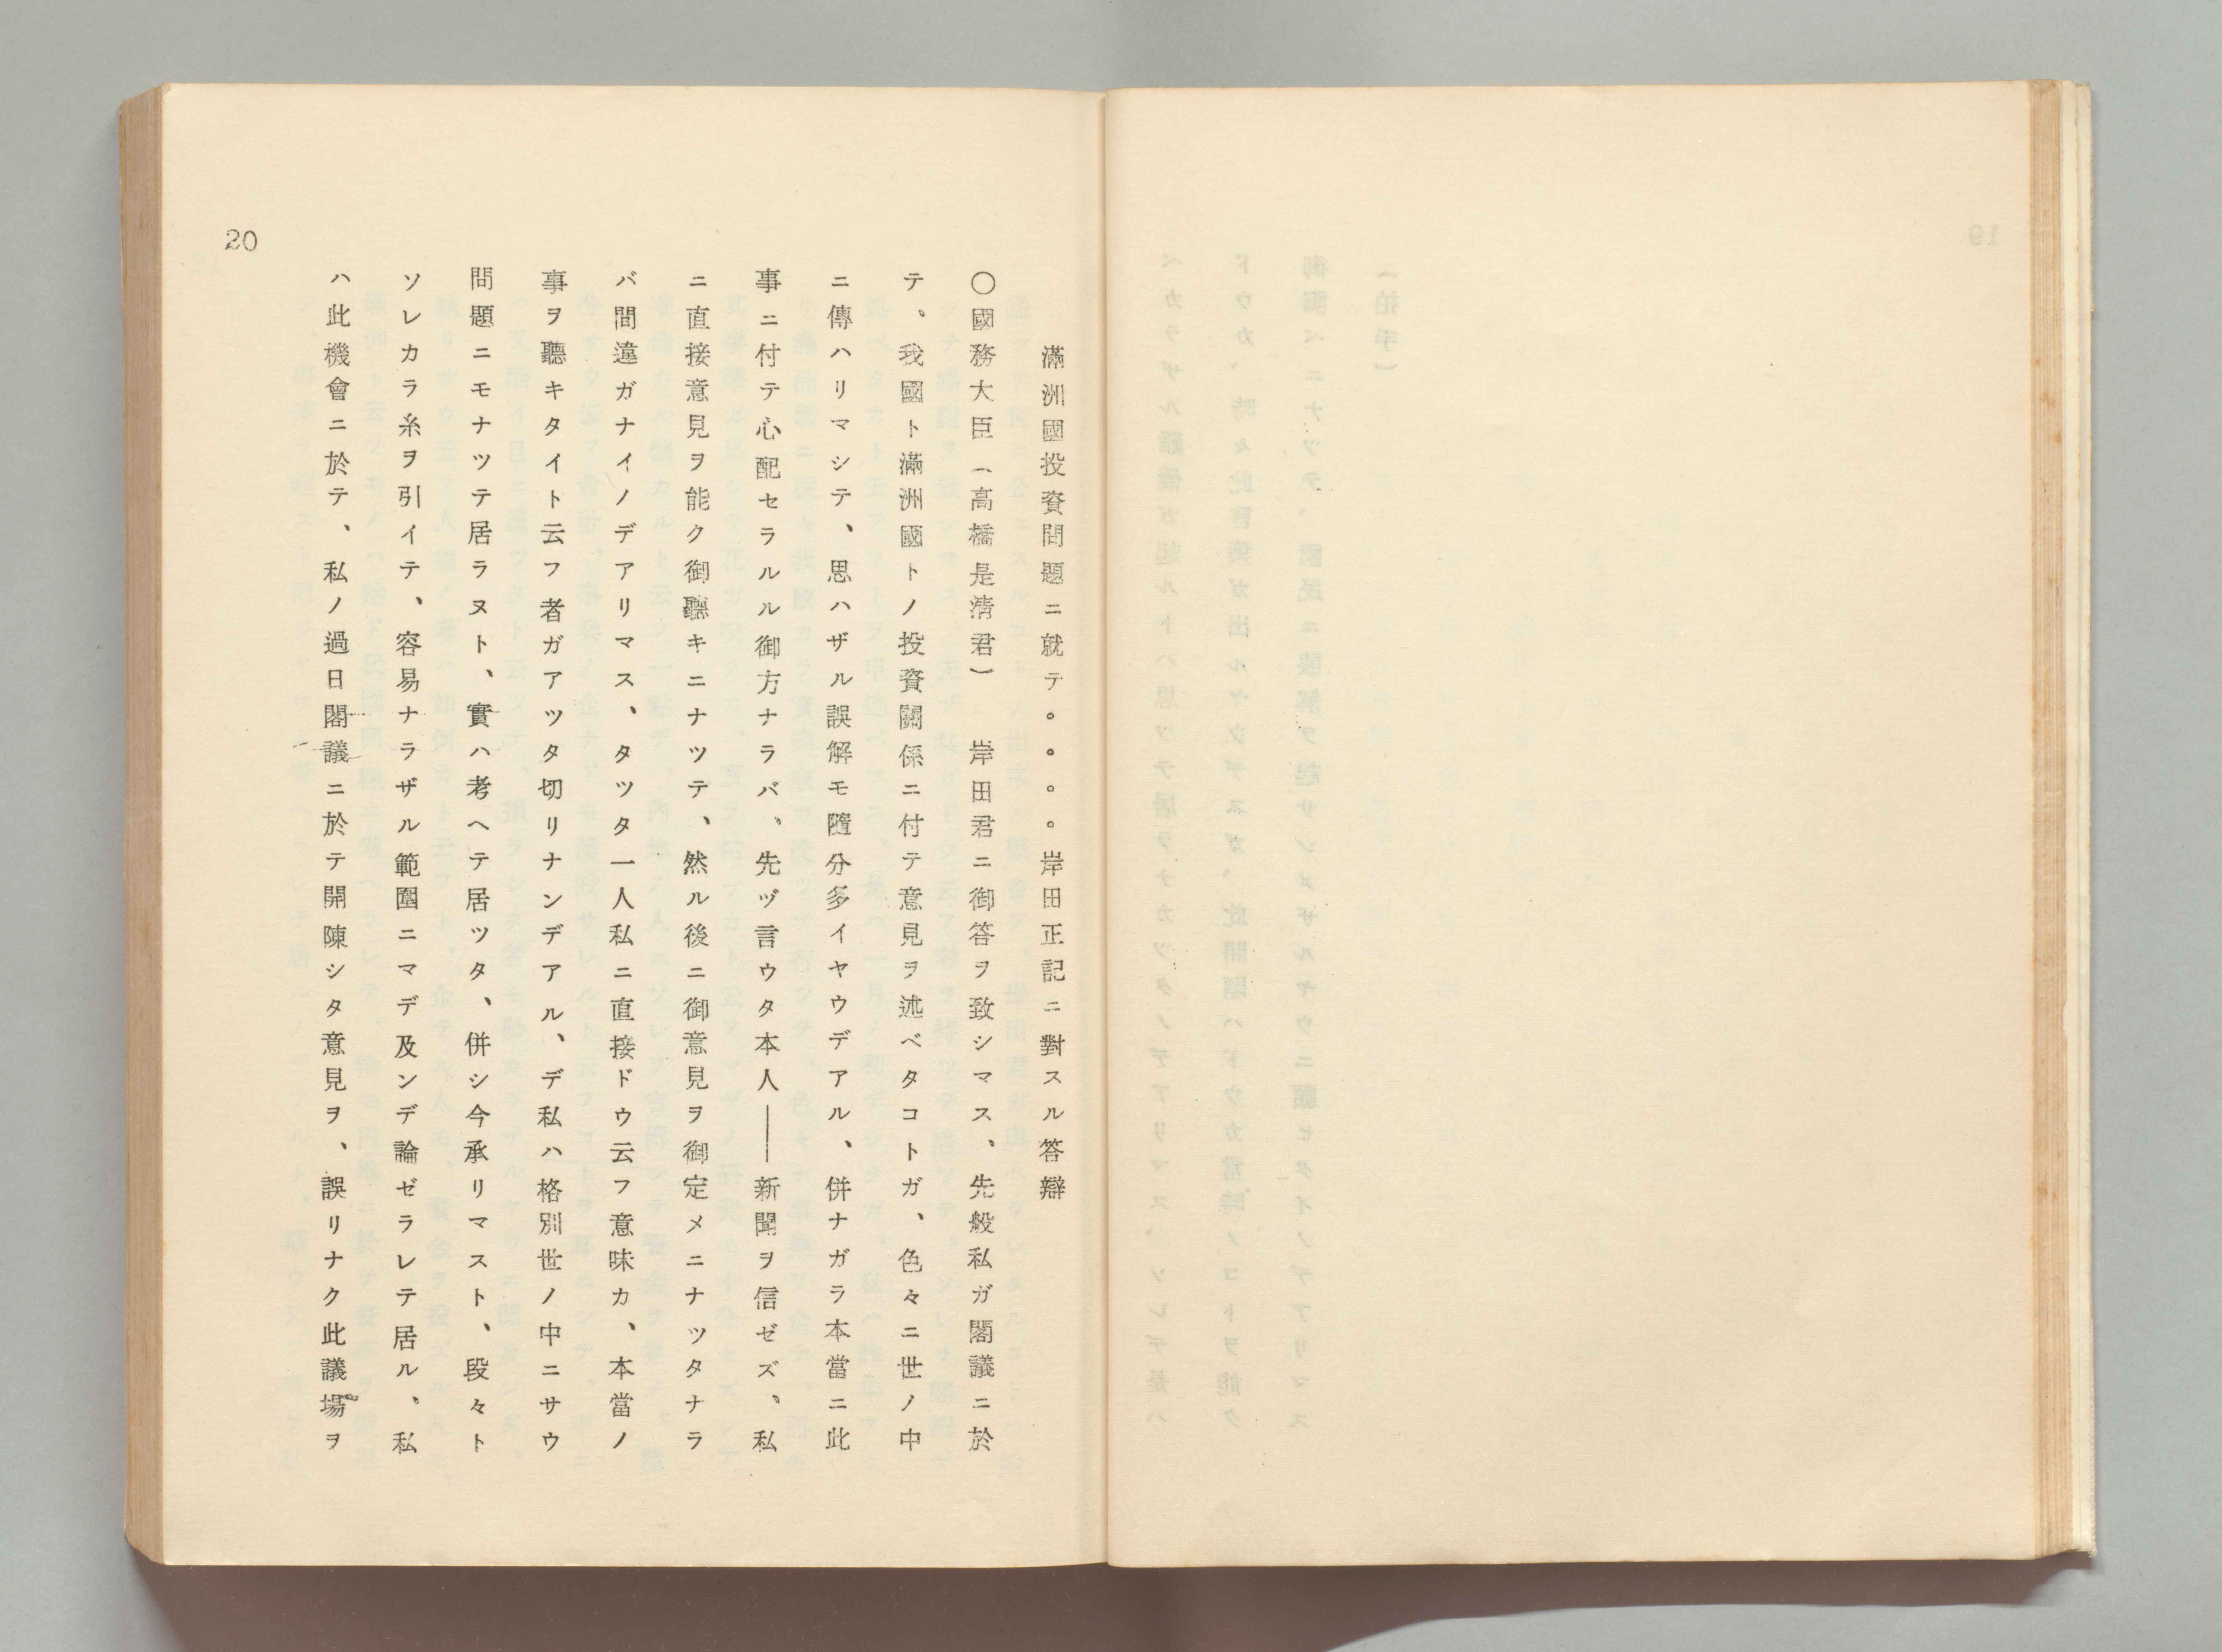 滿洲國投資問題ニ就テ。。。。岸田正記ニ對スル答辯
○國務大臣（高橋是淸君）　岸田君ニ御答ヲ致シマス、先般私ガ閣議ニ於
テ、我國ト滿洲國トノ投資關係ニ付テ意見ヲ述ベタコトガ、色々ニ世ノ中
ニ傳ハリマシテ、思ハザル誤解モ隨分多イヤウデアル、併ナガラ本當ニ此
事ニ付テ心配セラルル御方ナラバ、先ヅ言ウタ本人――新聞ヲ信ゼズ、私
ニ直接意見ヲ能ク御聽キニナツテ、然ル後ニ御意見ヲ御定メニナツタナラ
バ間違ガナイノデアリマス、タツタ一人私ニ直接ドウ云フ意味カ、本當ノ
事ヲ聽キタイト云フ者ガアツタ切リナンデアル、デ私ハ格別世ノ中ニサウ
問題ニモナツテ居ラヌト、實ハ考ヘテ居ツタ、併シ今承リマスト、段々ト
ソレカラ糸ヲ引イテ、容易ナラザル範圍ニマデ及ンデ論ゼラレテ居ル、私
ハ此機會ニ於テ、私ノ過日閣議ニ於テ開陳シタ意見ヲ、誤リナク此議場ヲ
20